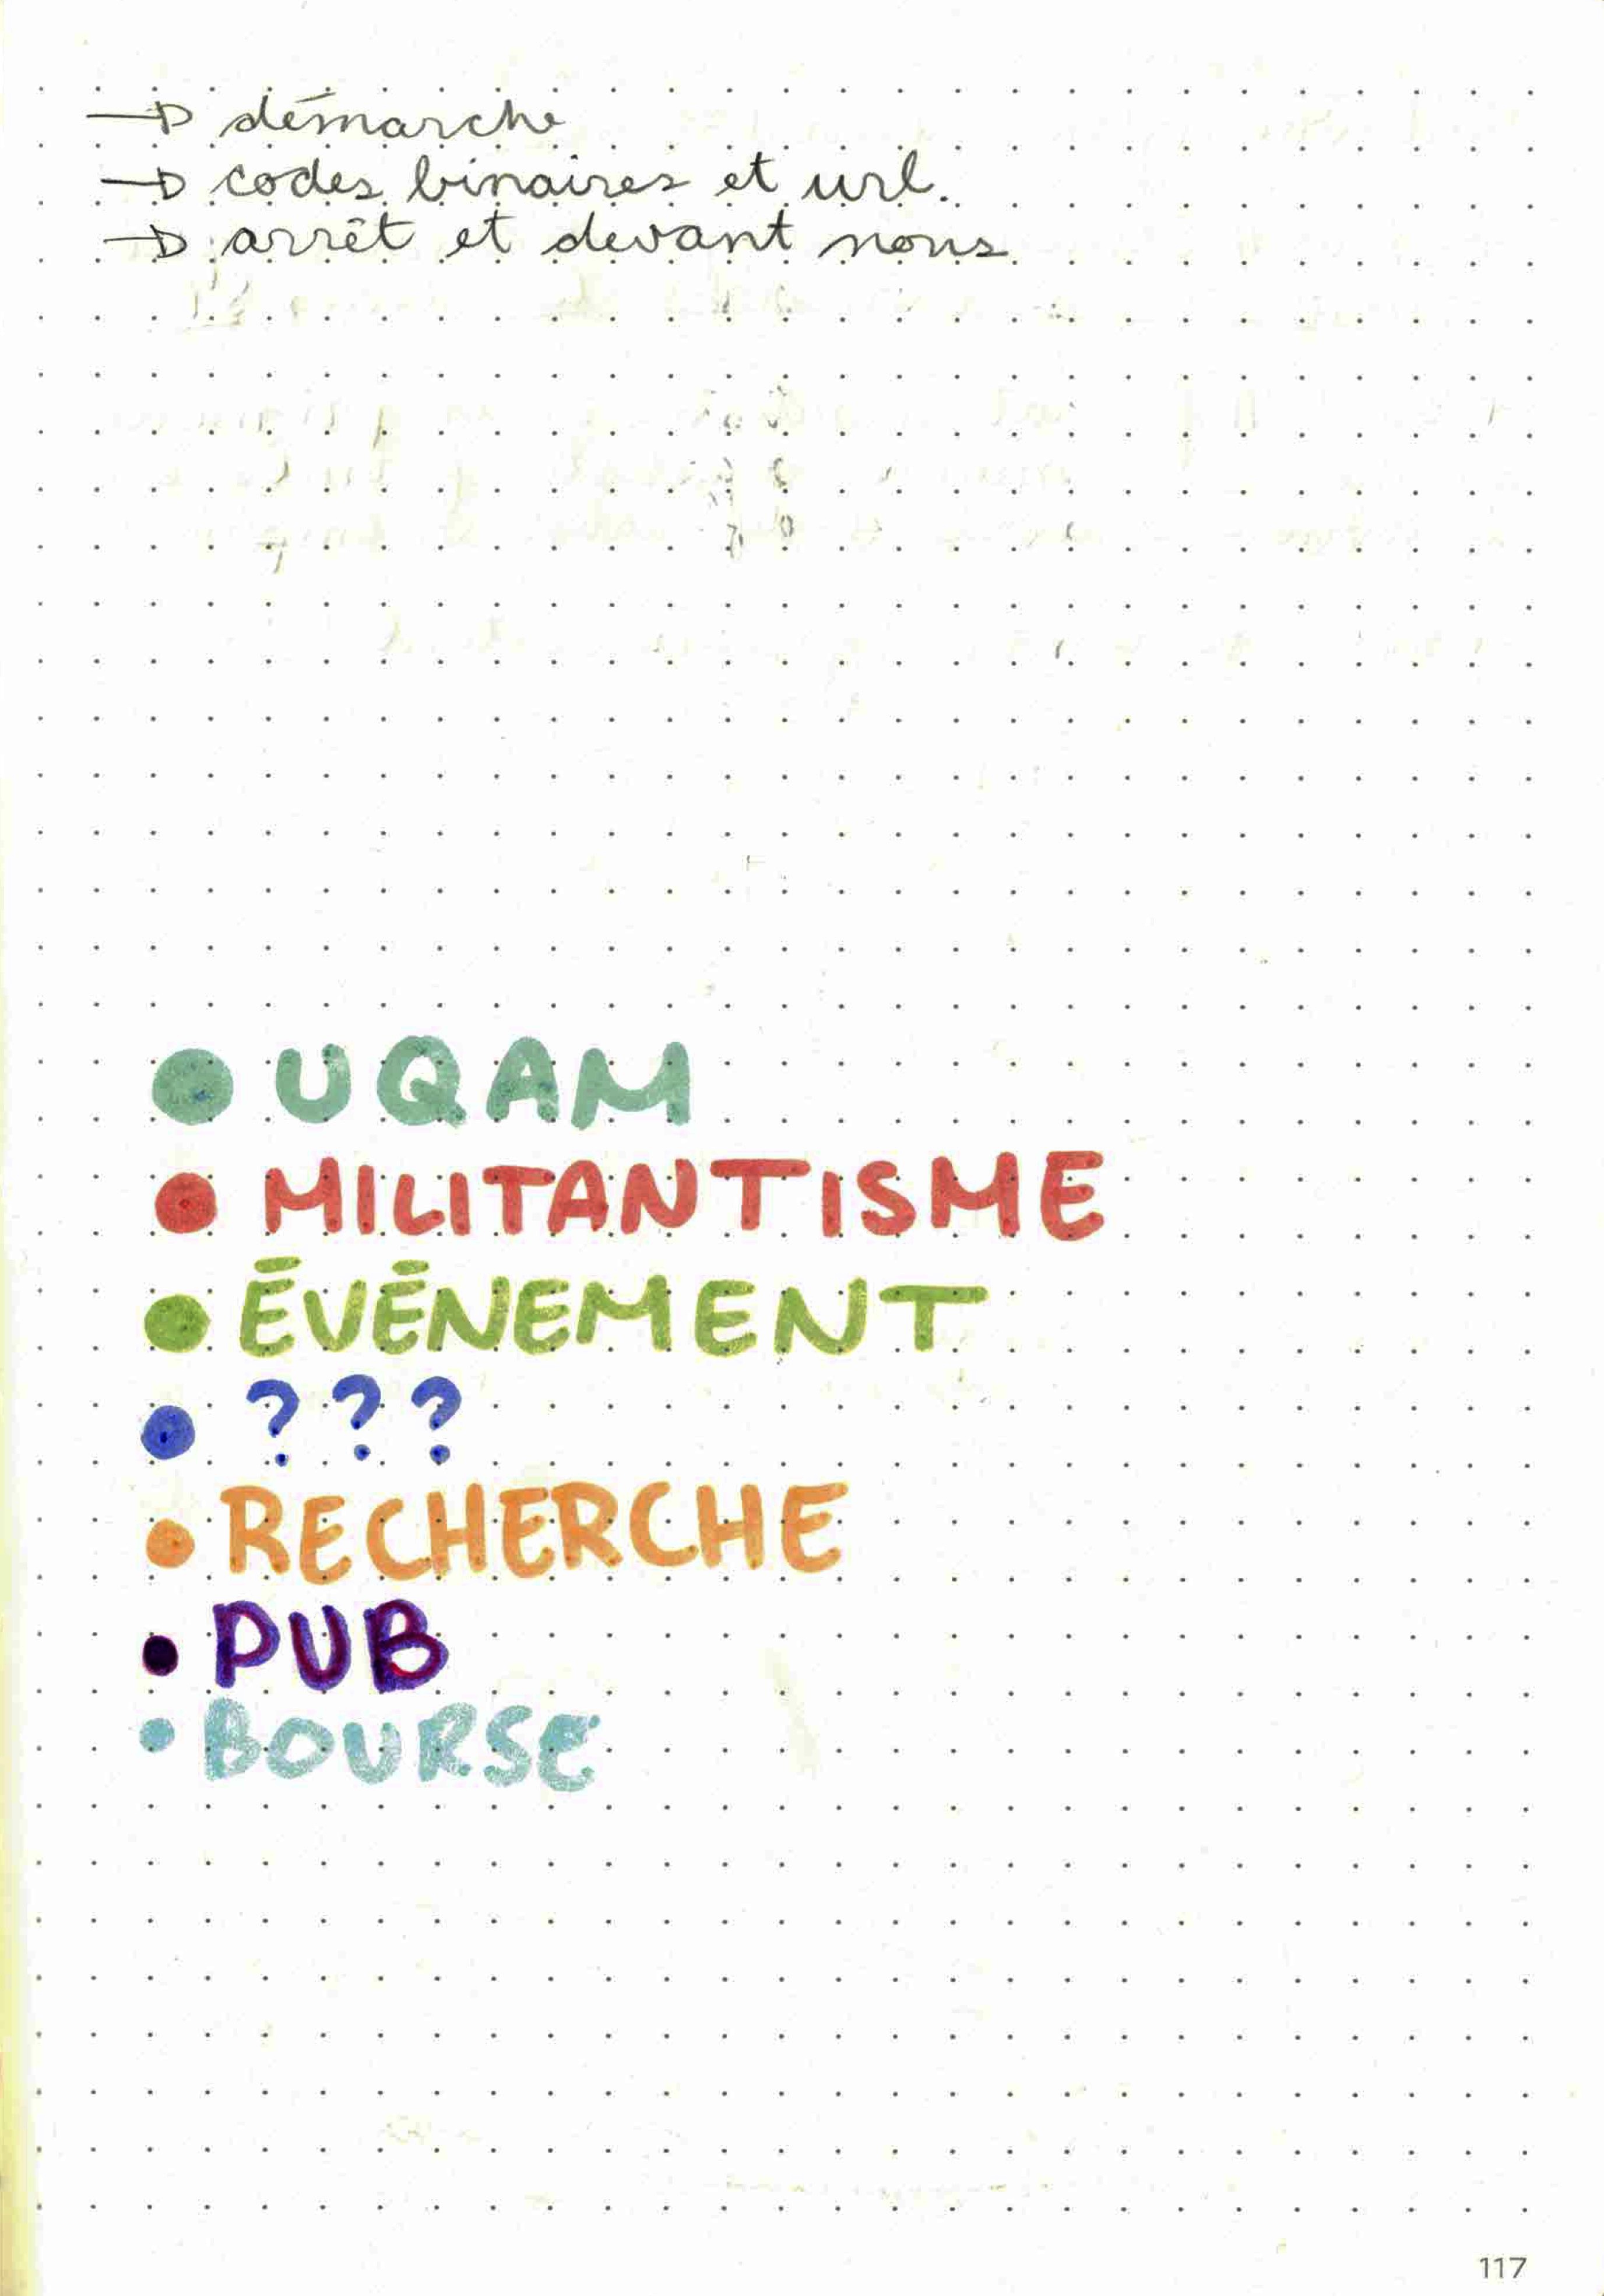 → démarche
→ codes binaires et url.
→ arrêt et devant nous
● UQAM
● MILITANTISME
● ÉVÉNEMENT
● ???
● RECHERCHE
● PUB
● BOURSE
117